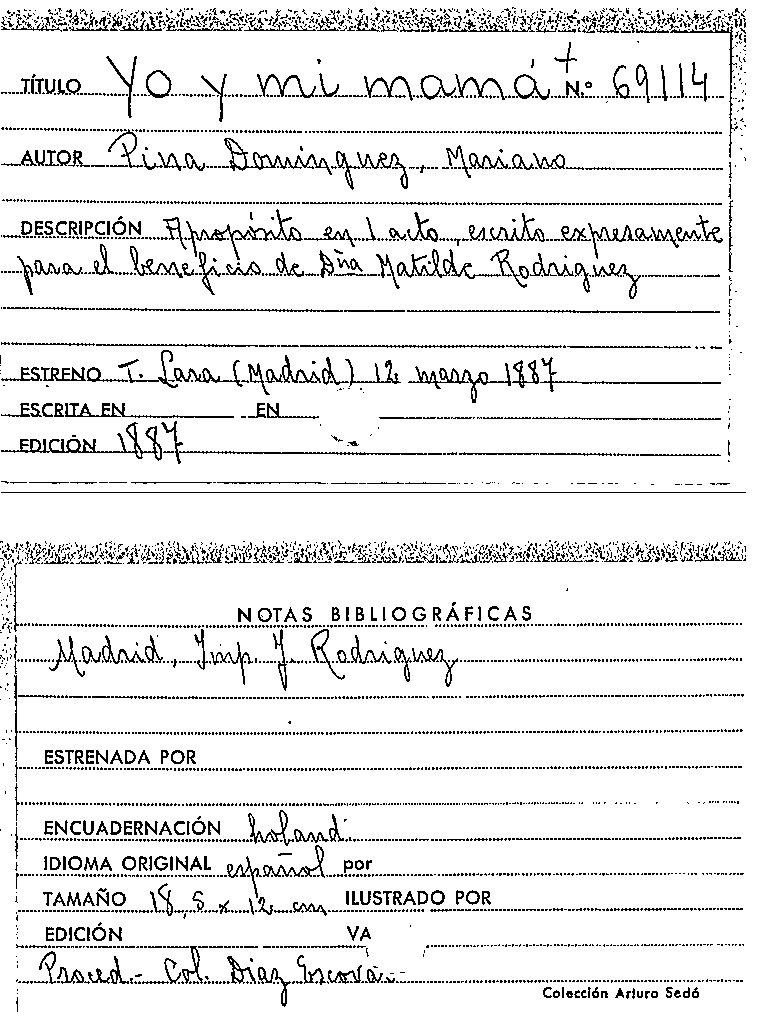 TÍTULO Yo y mi mamá + N.º 69114
AUTOR Pina Dominguez, Mariano
DESCRIPCIÓN Apropósito en 1 acto, escrito expresamente
para el beneficio de Dña Matilde Rodriguez
ESTRENO T. Lara (Madrid) 12 marzo 1887
ESCRITA EN EN
EDICIÓN 1887
NOTAS BIBLIOGRÁFICAS
Madrid, Imp J. Rodriguez
ESTRENADA POR
ENCUADERNACIÓN holand.
IDIOMA ORIGINAL español por
TAMAÑO 18,5 x 12 cm ILUSTRADO POR
EDICIÓN VA
Proced.- Col. Diaz Escova.-
Colección Arturo Sedó